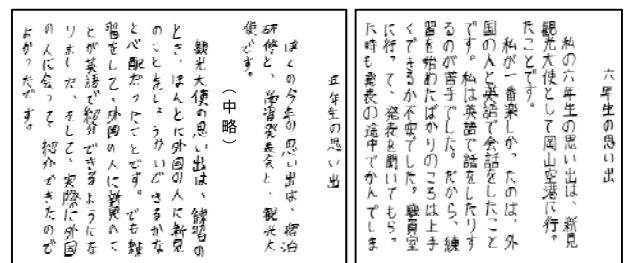 六年生の思い出
私の六年生の思い出は、新見
観光大使として岡山空港に行っ
たことです。
私が一番楽しかったのは、外
国の人と英語で会話をしたこと
です。私は英語で話をしたりす
るのが苦手でした。だから、練
習を始めたばかりのころは上手
くできるか不安でした。職員室
に行って、発表を聞いてもらっ
た時も発表の途中でかんでしま
五年生の思い出
ぼくの今年の思い出は、宿泊
研修と、学習発表会と、観光大
使です。
（中略）
観光大使の思い出は、練習の
とき、ほんとに外国の人に新見
のことをしょうかいできるかな
と心配だったことです。でも練
習をして、外国の人に新見のこ
とが英語で紹介できるようにな
りました。そして、実際に外国
の人に会って、紹介できたので
よかったです。